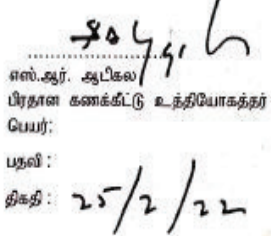 எஸ்.ஆர். ஆடிகல
பிரதான கணக்கீட்டு உத்தியோகத்தர்
பெயர்:
பதவி :
திகதி : 25/2/22